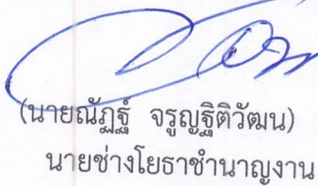 (นายณัฏฐ์ จรูญฐิติวัฒน)
นายช่างโยธาชำนาญงาน